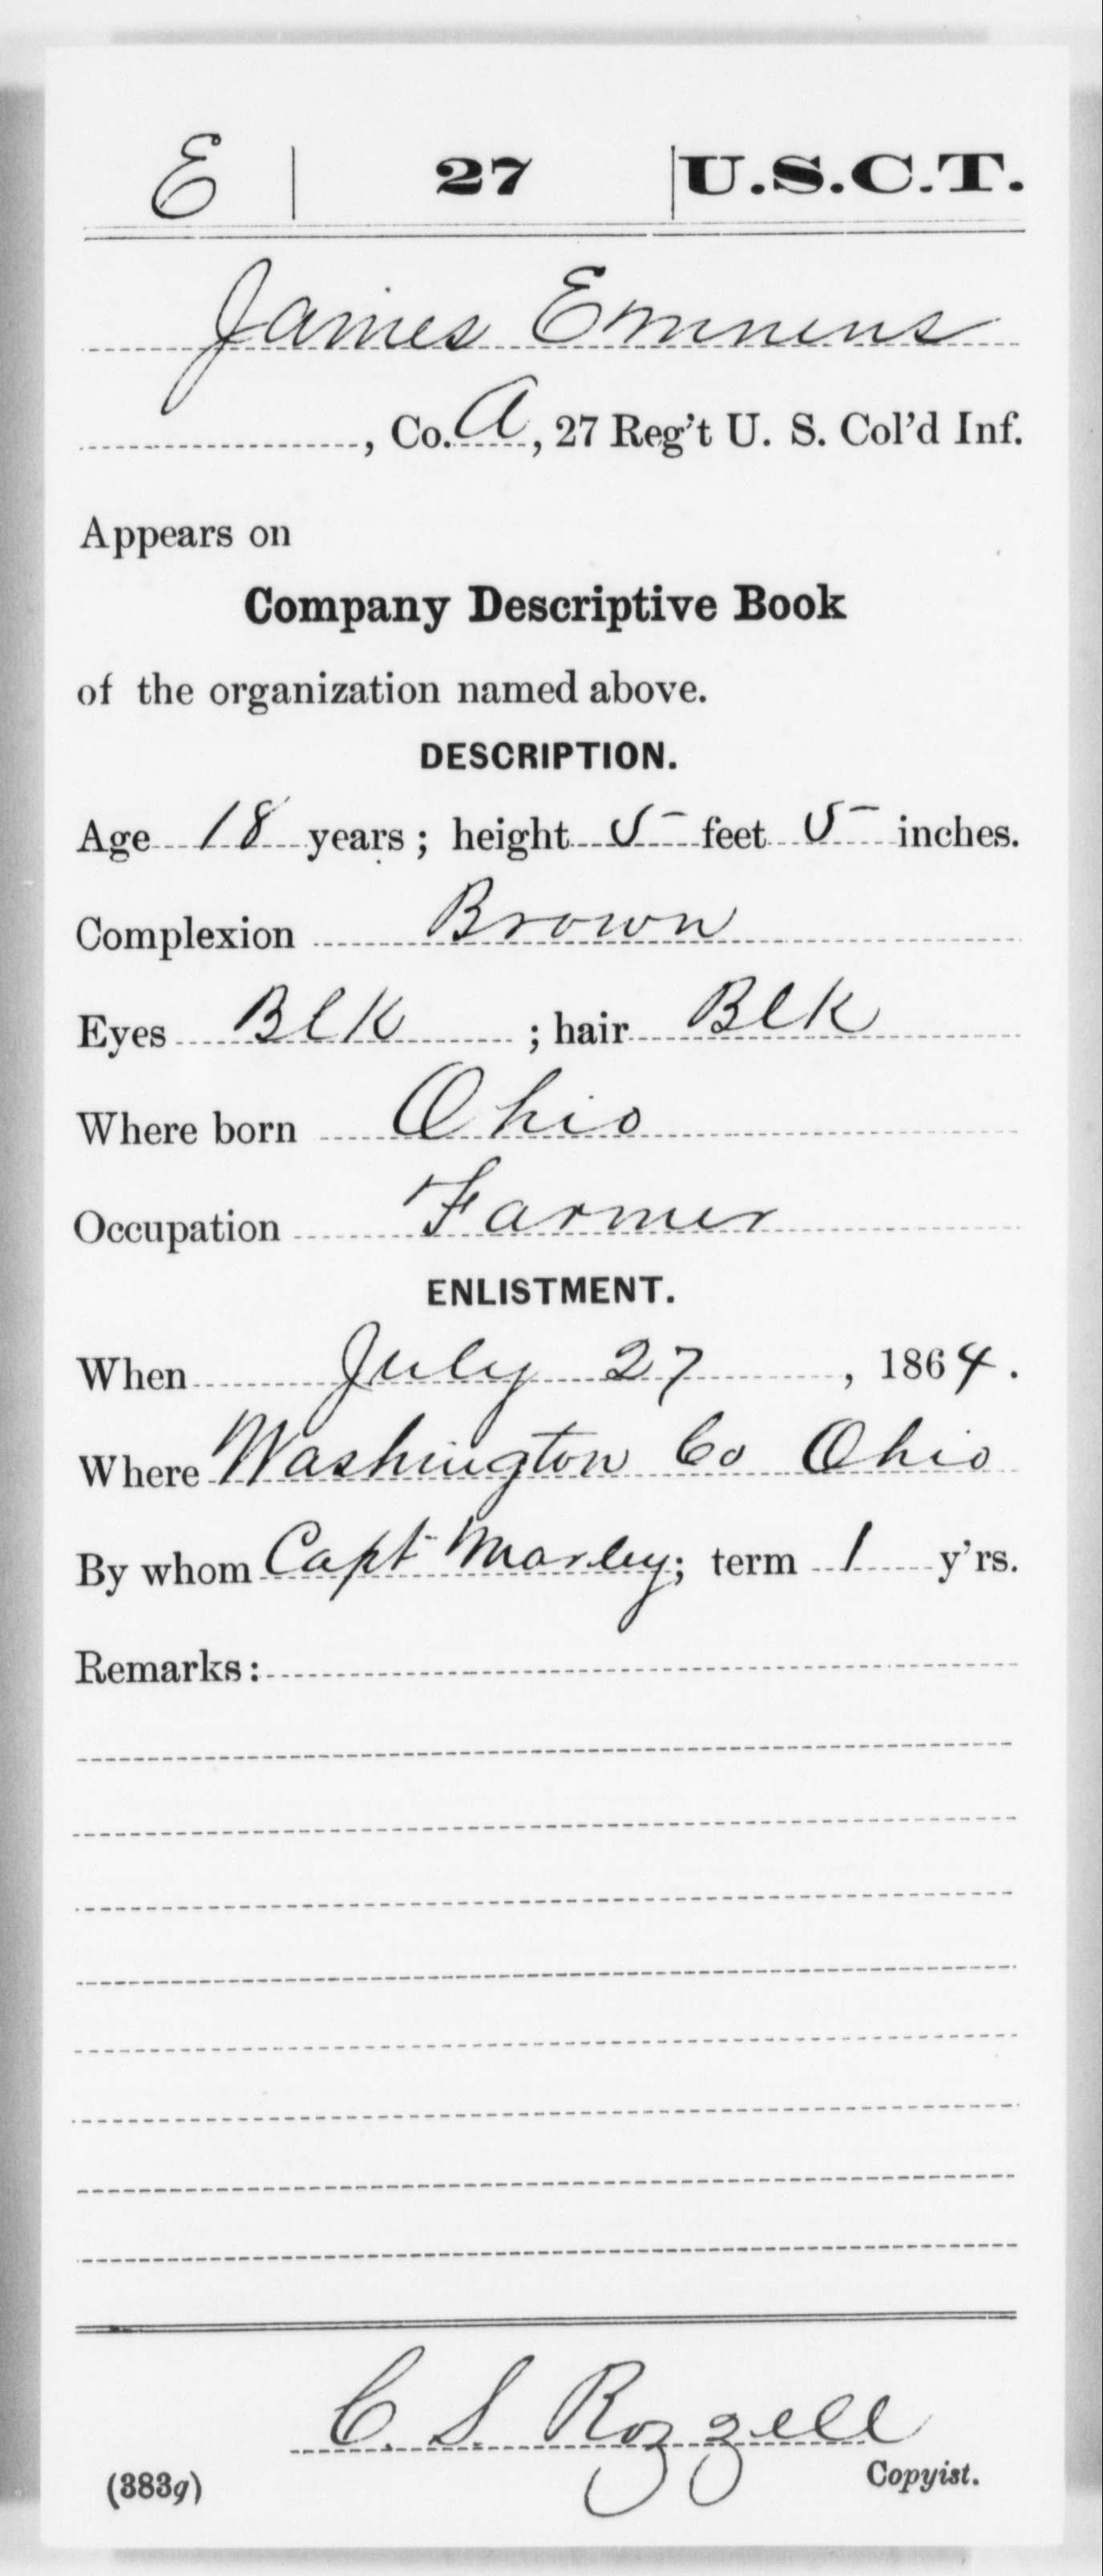 E | 27 | U.S.C.T.
James Emmens
, Co. A, 27 Reg't U. S. Col'd Inf.
Appears on
Company Descriptive Book
of the organization named above.
DESCRIPTION.
Age 18 years; height 5 feet 5 inches.
Complexion Brown
Eyes Blk ; hair Blk
Where born Ohio
Occupation Farmer
ENLISTMENT.
When July 27, 1864.
Where Washington Co Ohio
By whom Capt Marley; term 1 y'rs.
Remarks:
C. S. Rozzell
(383g) Copyist.